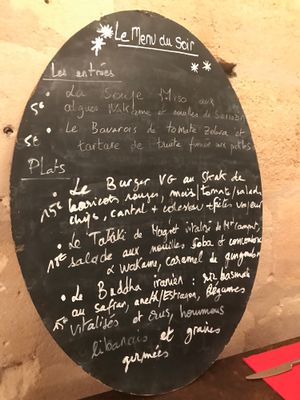 Le Menu du Soir
Les entrées
• La Soupe Miso aux
5€ algues Wakame et nouilles de Sarrazin
• Le Bavarois de tomate Zebra et
5€ tartare de truite fumée aux
Plats
• Le Burger VG au Steak de
15€ haricots rouges, maïs/tomate/salade
chips, cantal + coleslaw
• Le Tataki de Magret
15€ salade aux nouilles Soba et concombre
& Wakame, caramel de gingembre
• Le Buddha iranien : riz basmati
au safran, aneth/Estragon, légumes
15€ vitalisés et crus, houmous
libanais et graines
germées